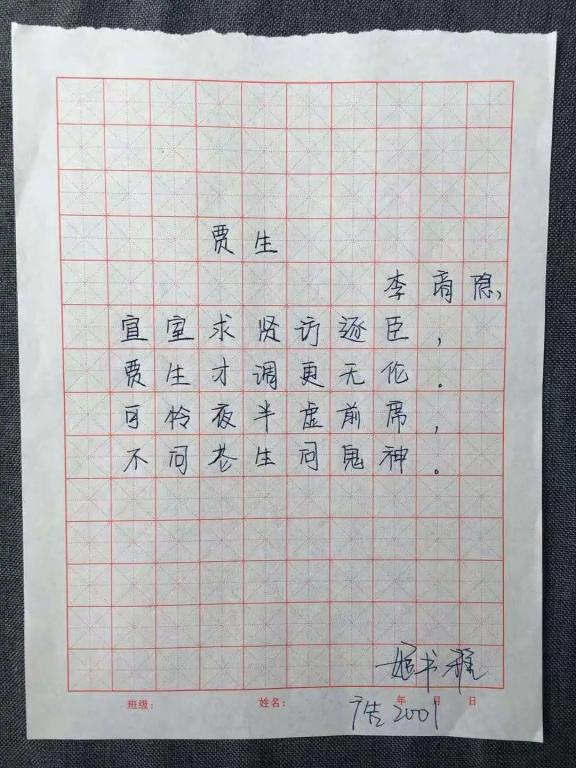 贾生
李商隐,
宣室求贤访逐臣,
贾生才调更无伦。
可怜夜半虚前席,
不问苍生问鬼神。
书雅
班级: 姓名: 年 月 日
广告2001